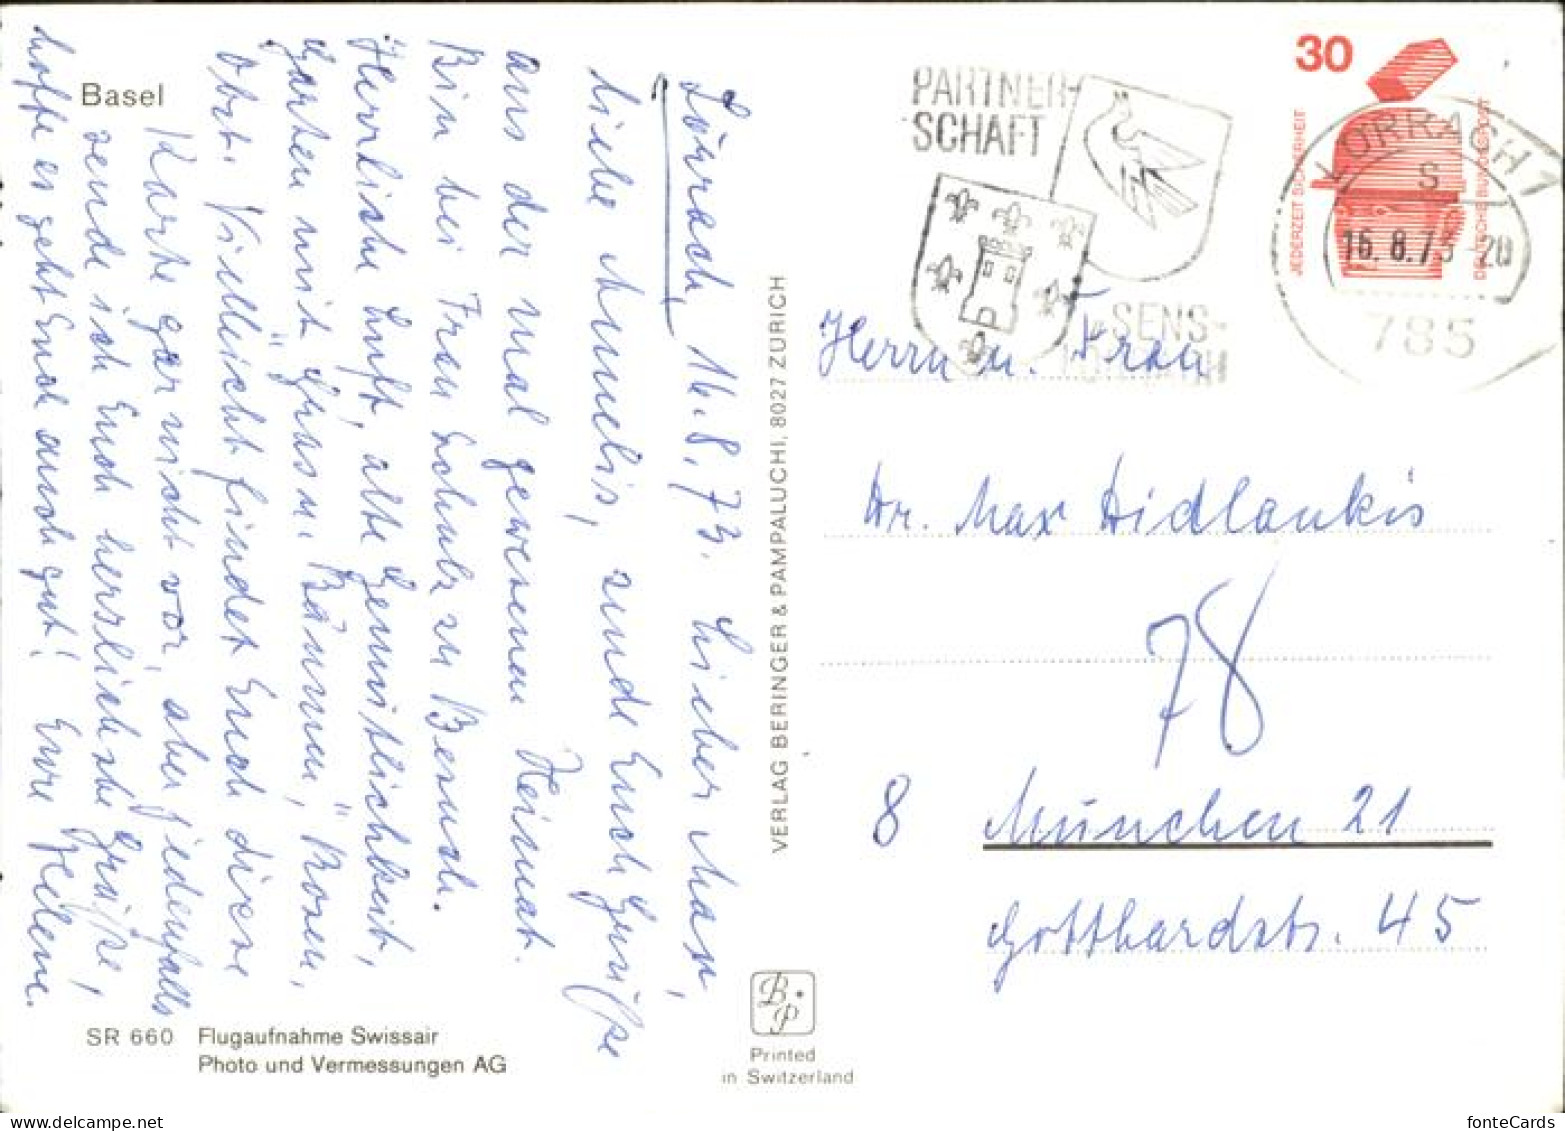 Basel
Lörrach, 16.8.73. Lieber Max,
liebe Annelis, sende Euch Grüße
aus der mal gewesenen Heimat.
Bin bei Frau Schulz zu Besuch.
Herrliche Luft, alte Gemütlichkeit,
Garten mit Gras u. Bäumen, Rosen,
Obst. Vielleicht findet Euch diese
Karte gar nicht vor, aber jedenfalls
sende ich Euch herzlichste Grüße,
hoffe es geht Euch auch gut! Eure Helene.
SR 660 Flugaufnahme Swissair
Photo und Vermessungen AG
VERLAG BERINGER & PAMPALUCHI, 8027 ZÜRICH
B P
Printed
in Switzerland
PARTNER-
SCHAFT
SENS-
30
JEDERZEIT SICHERHEIT
DEUTSCHE BUNDESPOST
LÖRRACH 1
S
16.8.73-20
785
Herrn u. Frau
Dr. Max Didlaukis
78
8 München 21
Gotthardstr. 45
fonteCards